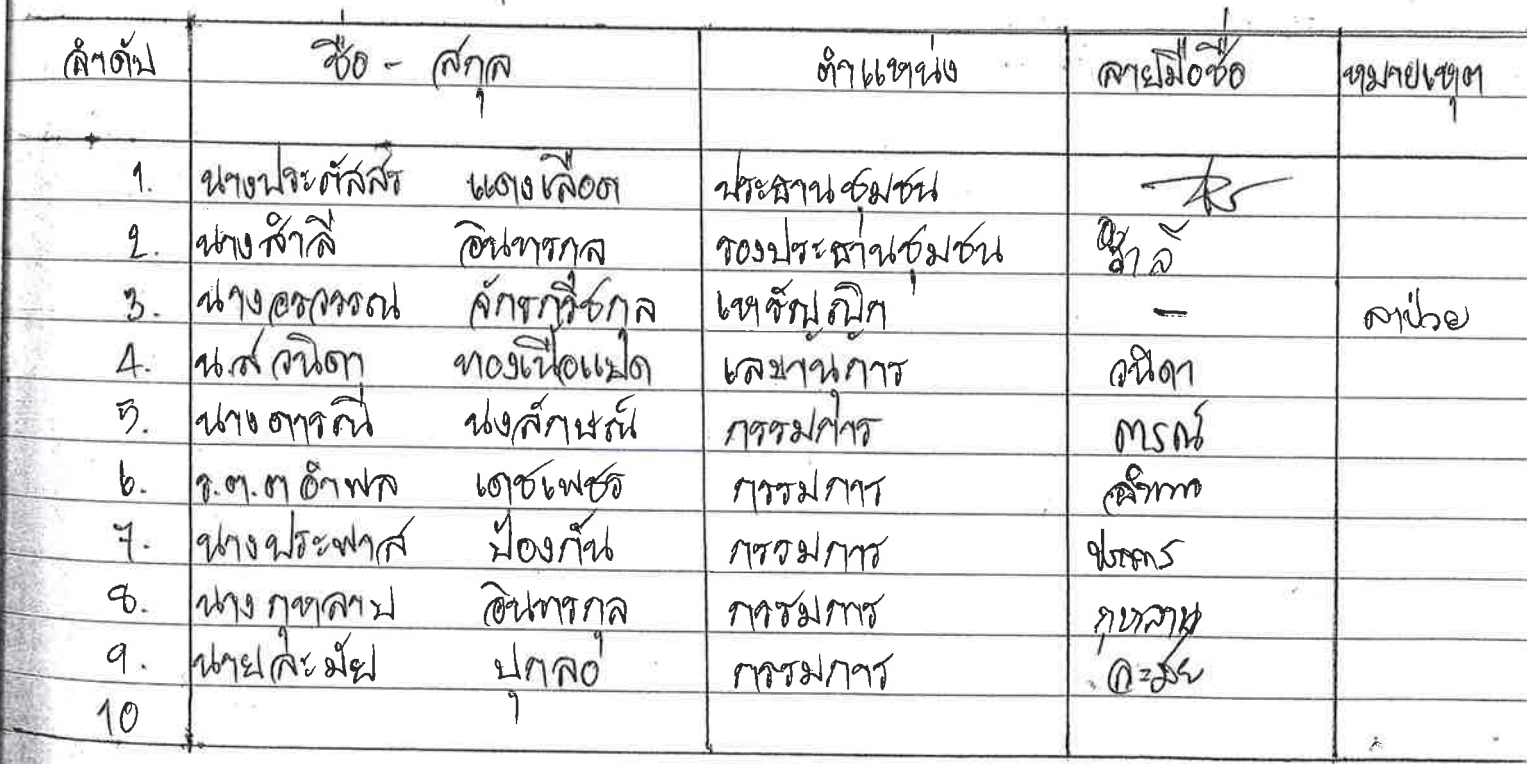 ลำดับ ชื่อ - สกุล ตำแหน่ง ลายมือชื่อ หมายเหตุ
1. นางประภัสสร แดงเลือด ประธานชุมชน
2. นางสำลี อินทรกุล รองประธานชุมชน สำลี
3. นางอรวรรณ เหรัญญิก - ลาป่วย
4. น.ส วนิดา ทองเนื้อแปด เลขานุการ วนิดา
5. นางดารณี นงลักษณ์ กรรมการ ดารณี
6. ร.ต.ต อำพล เดชเพชร กรรมการ
7. นางประพาส ป้องกัน กรรมการ
8. นางกุหลาบ อินทรกุล กรรมการ กุหลาบ
9. นายละมัย ปุกลอ กรรมการ ละมัย
10